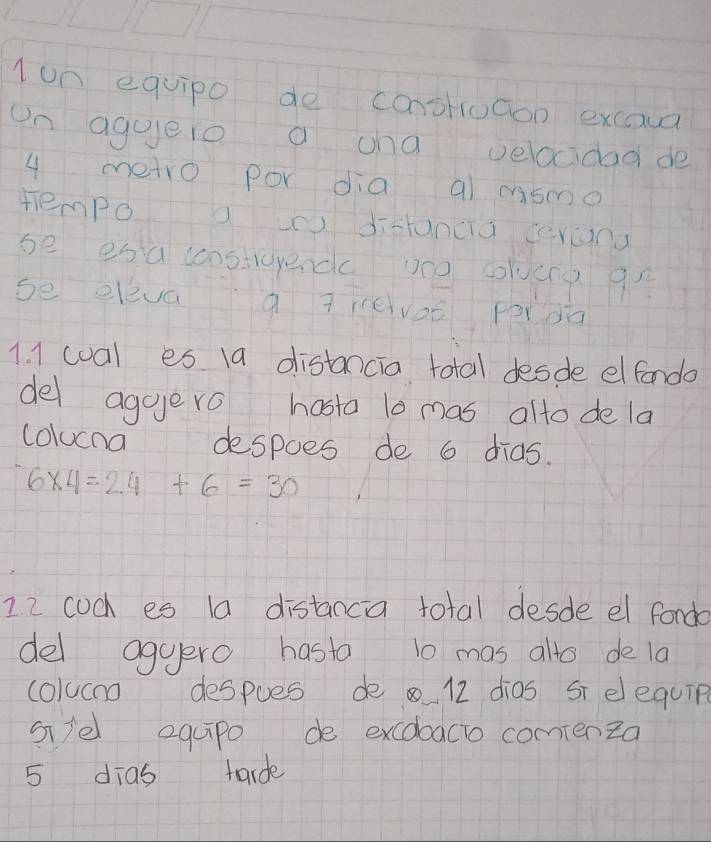 1 un equipo de construcion excava
un agujero a una velocidad de
4 metro por dia al msmo
tiempo a una distancia cercana
se esta construyendo una colucna que
se eleva a 7 metros por dia
1.1 cual es la distancia total desde el fondo
del agujero hasta lo mas alto de la
colucna despues de 6 dias.
6x4=24 + 6 = 30
1.2 es la distanca total desde el fondo
del agujero hasta lo mas alto de la
colucna despues de 12 dias si el equip
si el equipo de excabacio comienza
5 dias tarde